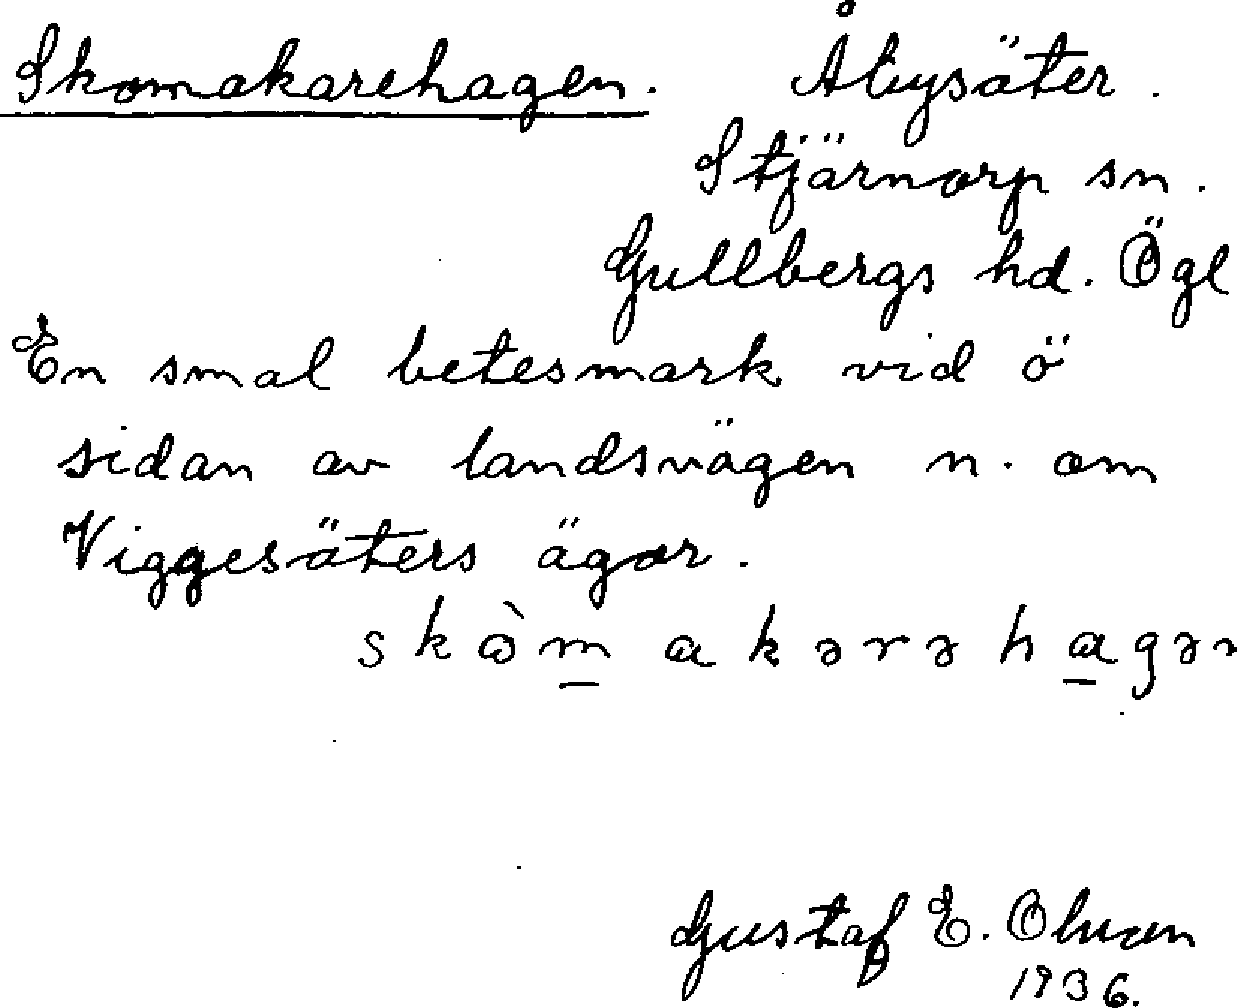 Skomakarehagen. Åbysäter.
Stjärnorp sn.
Gullbergs hd. Ögl
En smal betesmark vid ö
sidan av landsvägen n. om
Viggesäters ägor.
skɷ̀m̲ akərəha̲gən
Gustaf E. Olsson
1936.